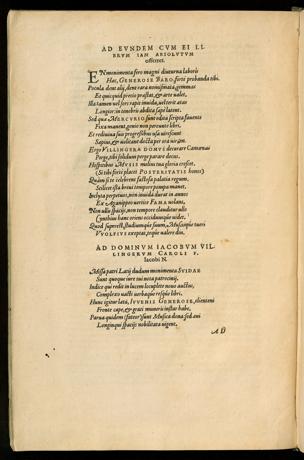 AD EVNDEM CVM EI LI
BRVM IAM ABSOLVTVM
offerret.
EN monimenta fero magni diuturna laboris
Hæc, GENEROSE BARO, forti probanda tibi.
Pocula dent alij, dent rara nomismata, gemmas
Et quicquid precio præstat, & arte ualet,
Illa tamen uel sors rapit inuida, uel terit ætas
Longior, in tenebris abdita sæpe latent.
Sed quæ MERCVRIO sunt edita scripta fauente
Fixa manent, genio non pereunte libri.
Et rediuiua suis progressibus usa uirescunt
Sæpius, & uelitant docta per ora uirûm.
Ergo VILLINGERA DOMVS decurare Camœnas
Perge, tibi solidum perge parare decus.
Hospitibus MVSIS multa tua gloria crescet,
(Si tibi forte placet POSTERITATIS honos)
Quàm si te celebrem factosa palatia regum.
Scilicet ista breui tempore pompa manet,
Inclyta perpetuos, non inuidâ durat in annos
Ex Aganippæo uertice FAMA uolans,
Non ullis spacijs, non tempore clauditur ullo
Cynthius hanc oriens occiduusque uidet.
Quod superest, studiumque suum, Musasque tueri
VVOLFIVS exoptat, teque ualere diu.
AD DOMINVM IACOBVM VIL
LINGERVM CAROLI F.
Iacobi N.
Missa patri Latij dudum monimenta SVIDAE
Sunt quoque iure tui nota patrocinij.
Indice qui redit in lucem locuplete nouo auctus,
Complexo uasti uerbaque resque libri.
Hunc igitur lætâ, IVVENIS GENEROSE, clientem
Fronte cape, & grati muneris instar habe,
Parua quidem (fateor) sunt Musica dona, sed æui
Longinqui spacijs nobilitata uigent.
AD